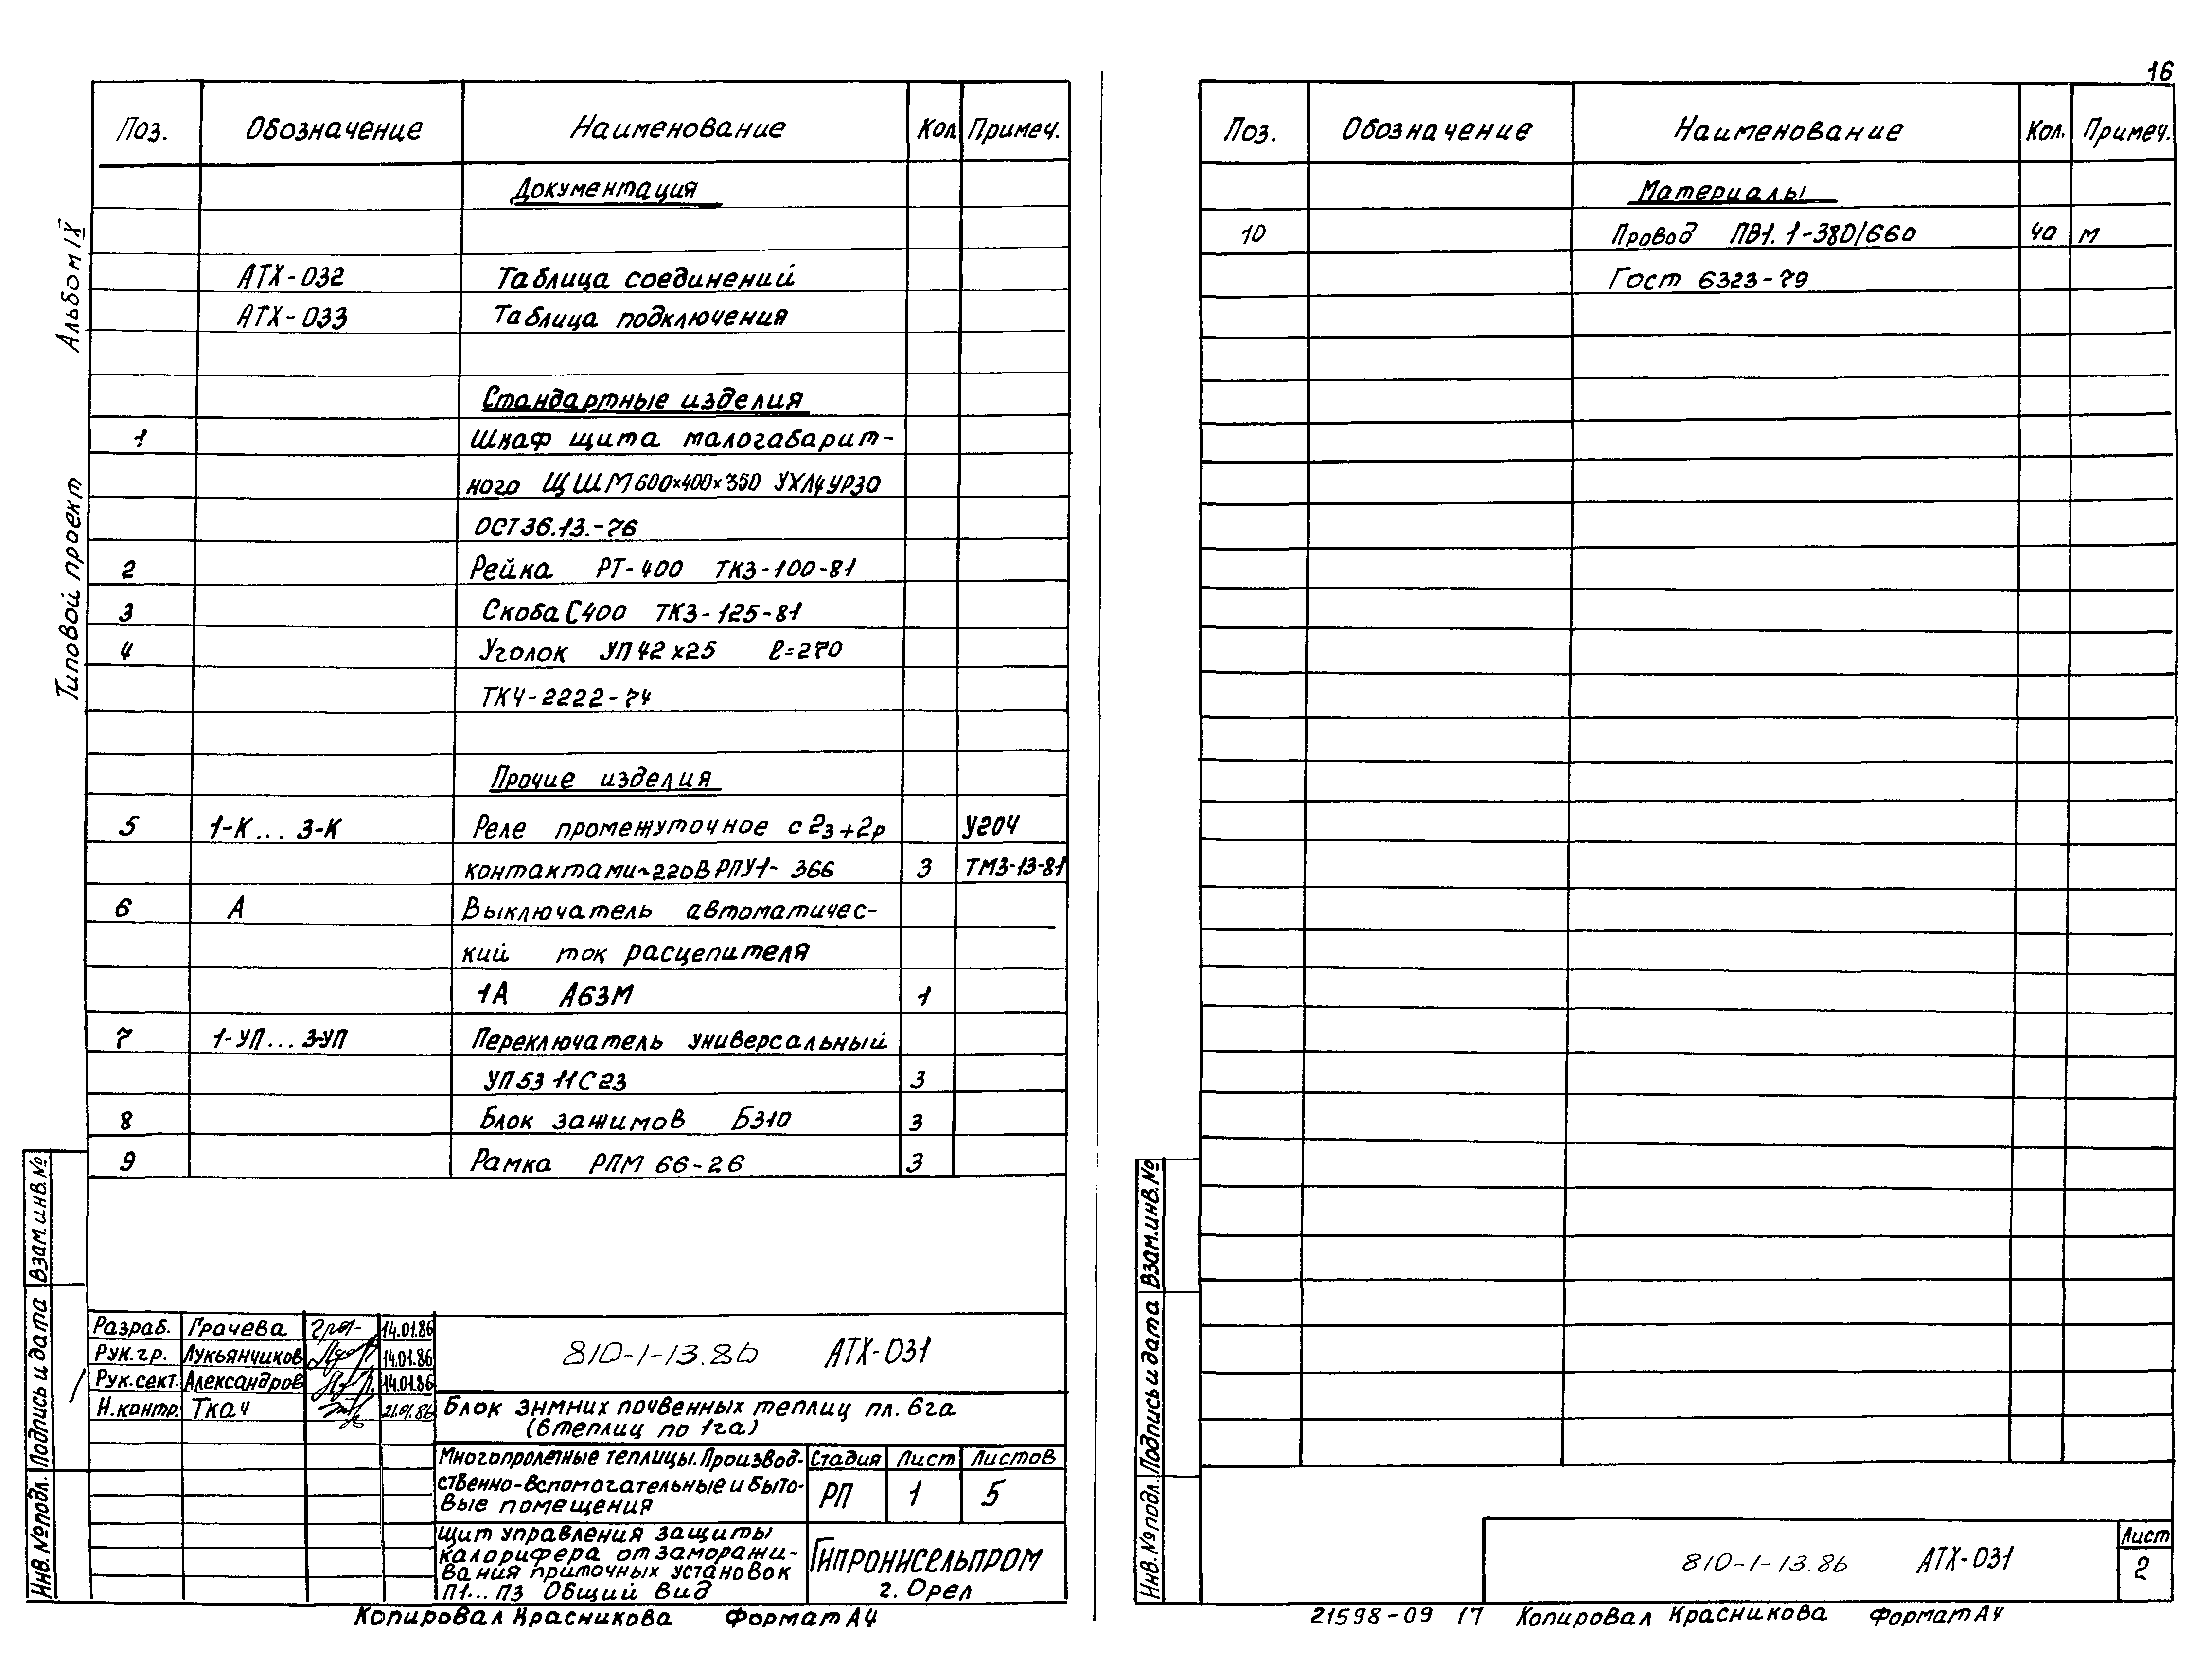 Альбом IX
Типовой проект
Поз. Обозначение Наименование Кол Примеч.
Документация
АТХ-032 Таблица соединений
АТХ-033 Таблица подключения
Стандартные изделия
1 Шкаф щита малогабарит-
ного ЩШМ 600х400х350 УХЛ4 УР30
ОСТ36.13.-76
2 Рейка РТ-400 ТК3-100-81
3 Скоба С400 ТК3-125-81
4 Уголок УП 42х25 ℓ=270
ТК4-2222-74
Прочие изделия
5 1-К... 3-К Реле промежуточное с 2з+2р У204
контактами~220В РПУ1-366 3 ТМ3-13-81
6 А Выключатель автоматичес-
кий ток расцепителя
1А А63М 1
7 1-УП... 3-УП Переключатель универсальный
УП5311С23 3
8 Блок зажимов БЗ10 3
9 Рамка РПМ 66-26 3
Взам.инв.№
Подпись и дата
Инв.№подл.
Разраб. Грачева 14.01.86
Рук.гр. Лукьянчиков 14.01.86
Рук.сект. Александров 14.01.86
Н.контр. Ткач 21.01.86
810-1-13.86 АТХ-031
Блок зимних почвенных теплиц пл. 6га
(6теплиц по 1га)
Многопролетные теплицы. Производ-
ственно-вспомогательные и быто-
вые помещения
Стадия Лист Листов
РП 1 5
Щит управления защиты
калорифера от заморажи-
вания приточных установок
П1...П3 Общий вид
Гипронисельпром
г. Орел
Копировал Красникова Формат А4
16
Поз. Обозначение Наименование Кол. Примеч.
Материалы
10 Провод ПВ1. 1-380/660 40 м
Гост 6323-79
Взам.инв.№
Подпись и дата
Инв.№подл.
810-1-13.86 АТХ-031
Лист
2
21598-09 17 Копировал Красникова Формат А4